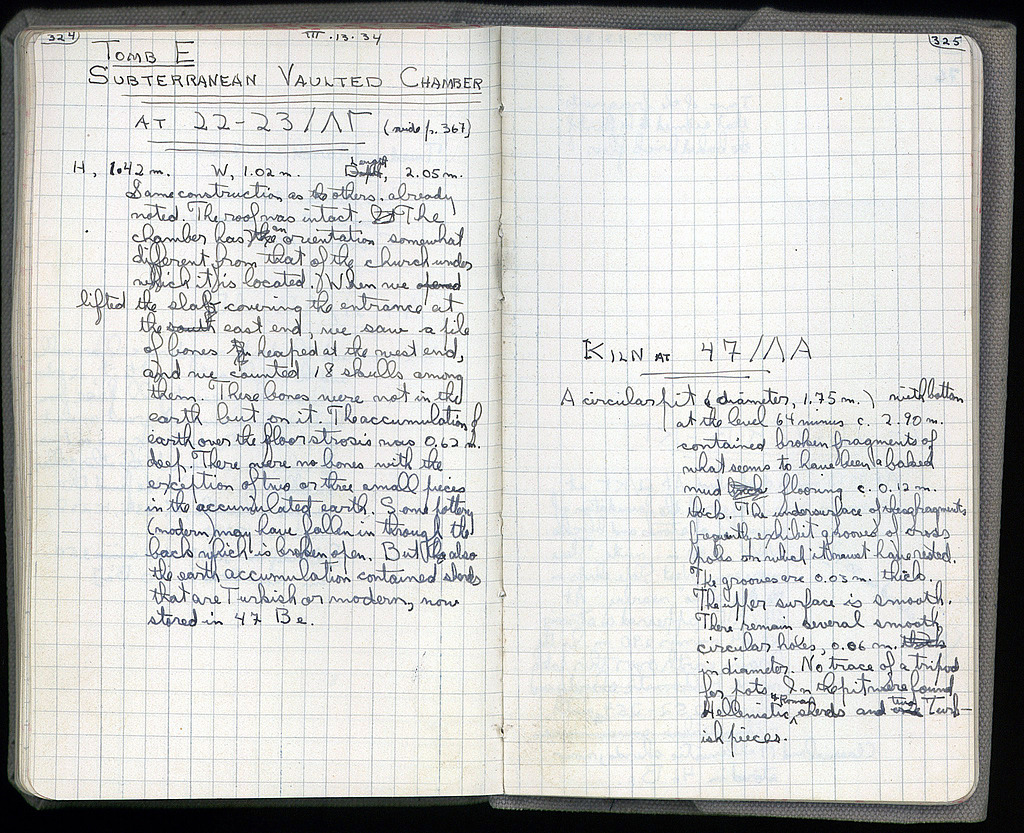 324
III.13.34
TOMB E
SUBTERRANEAN VAULTED CHAMBER
AT 22-23/ΛΓ (vide p. 367)
H, 1.42 m. W, 1.02 m. Length, 2.05 m.
Same construction as the others already
noted. The roof was intact. The
chamber has an orientation somewhat
different from that of the church under
which it is located. When we
lifted the slab covering the entrance at
the east end, we saw a pile
of bones heaped at the west end,
and we counted 18 skulls among
them. These bones were not in the
earth but on it. The accumulation of
earth over the floor strosis was 0.62 m.
deep. There were no bones with the
exception of two or three small pieces
in the accumulated earth. Some pottery
(modern) may have fallen in through the
back which is broken open. But also
the earth accumulation contained sherds
that are Turkish or modern, now
stored in 47 Be.
325
KILN AT 47/ΛΑ
A circular pit (diameter, 1.75 m.) with bottom
at the level 64 minus c. 2.90 m.
contained broken fragments of
what seems to have been a baked
mud flooring c. 0.12 m.
thick. The undersurface of these fragments
frequently exhibit grooves of cross
poles on which it must have rested.
The grooves are 0.03 m. thick.
The upper surface is smooth.
There remain several smooth
circular holes, 0.06 m.
in diameter. No trace of a tripod
for pots. In the pit were found
Hellenistic & Roman sherds and two Turk-
ish pieces.